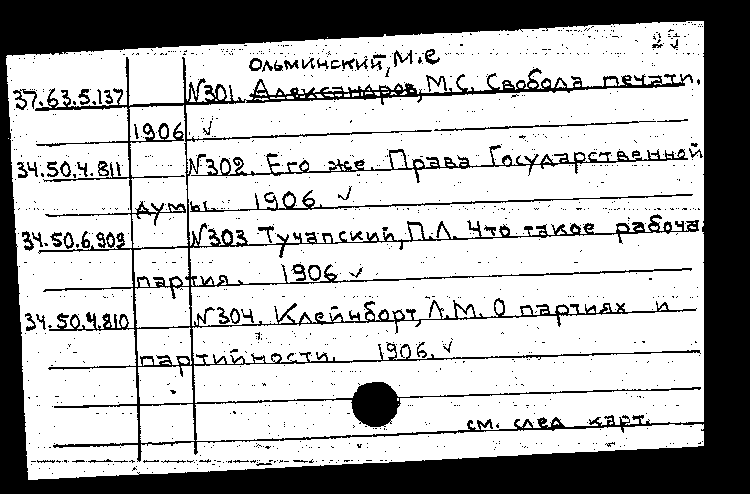 Ольминский, М.С
37.63.5.137 №301. Александров, М.С. Свобода печати.
1906. ✓
34.50.4.811 №302. Его же. Права Государственной
думы. 1906. ✓
34.50.6.909 №303 Тучапский, П.Л. Что такое рабочая
партия. 1906 ✓
34.50.4.810 №304. Клейнборт, Л.М. О партиях и
партийности. 1906. ✓
см. след карт.